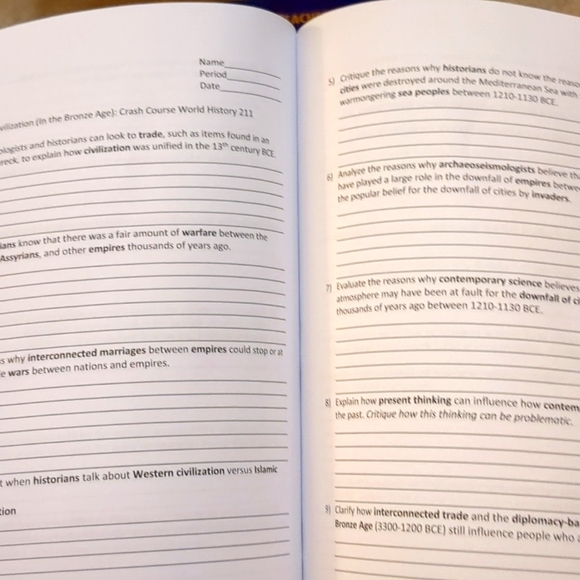 Name
Period
Date
(In the Bronze Age): Crash Course World History 211
and historians can look to trade, such as items found in an
to explain how civilization was unified in the 13th century BCE
know that there was a fair amount of warfare between the
Assyrians, and other empires thousands of years ago.
why interconnected marriages between empires could stop or at
wars between nations and empires.
when historians talk about Western civilization versus Islamic
5) Critique the reasons why historians do not know the
cities were destroyed around the Mediterranean Sea with
warmongering sea peoples between 1210-1130 BCE.
6) Analyze the reasons why archaeoseismologists believe
have played a large role in the downfall of empires
the popular belief for the downfall of cities by invaders.
7) Evaluate the reasons why contemporary science believes
atmosphere may have been at fault for the downfall of
thousands of years ago between 1210-1130 BCE.
8) Explain how present thinking can influence how
the past. Critique how this thinking can be problematic.
9) Clarify how interconnected trade and the
Bronze Age (3300-1200 BCE) still influence people who